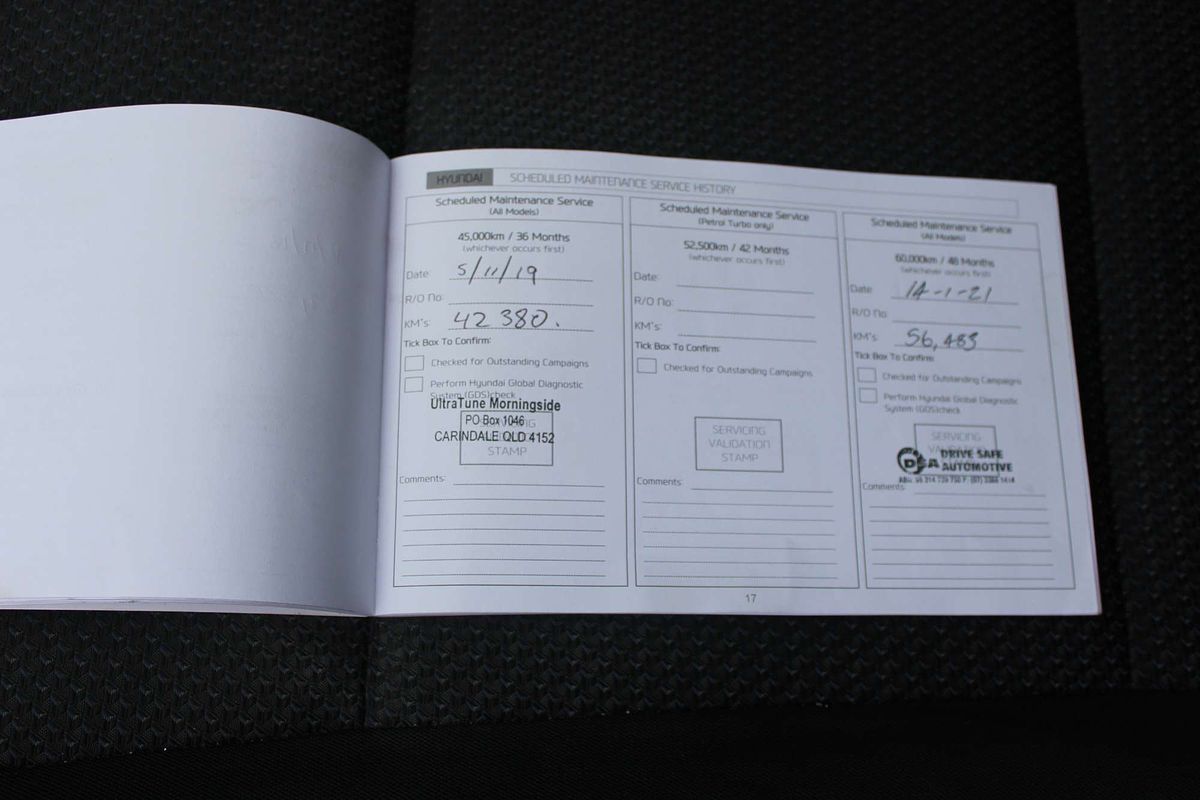 HYUNDAI SCHEDULED MAINTENANCE SERVICE HISTORY
Scheduled Maintenance Service
(All Models)
45,000km / 36 Months
(whichever occurs first)
Date: 5/11/19
R/O No:
KM's: 42 380.
Tick Box To Confirm:
Checked for Outstanding Campaigns
Perform Hyundai Global Diagnostic
System (GDS)check
UltraTune Morningside
PO Box 1046
CARINDALE QLD 4152
STAMP
Comments:
Scheduled Maintenance Service
(Petrol Turbo only)
52,500km / 42 Months
(whichever occurs first)
Date:
R/O No:
KM's:
Tick Box To Confirm:
Checked for Outstanding Campaigns
SERVICING
VALIDATION
STAMP
Comments:
Scheduled Maintenance Service
(All Models)
60,000km / 48 Months
(whichever occurs first)
Date: 14-1-21
R/O No:
KM's: 56,483
Tick Box To Confirm:
Checked for Outstanding Campaigns
Perform Hyundai Global Diagnostic
System (GDS)check
SERVICING
VALIDATION
STAMP
DSA DRIVE SAFE
AUTOMOTIVE
Comments:
17